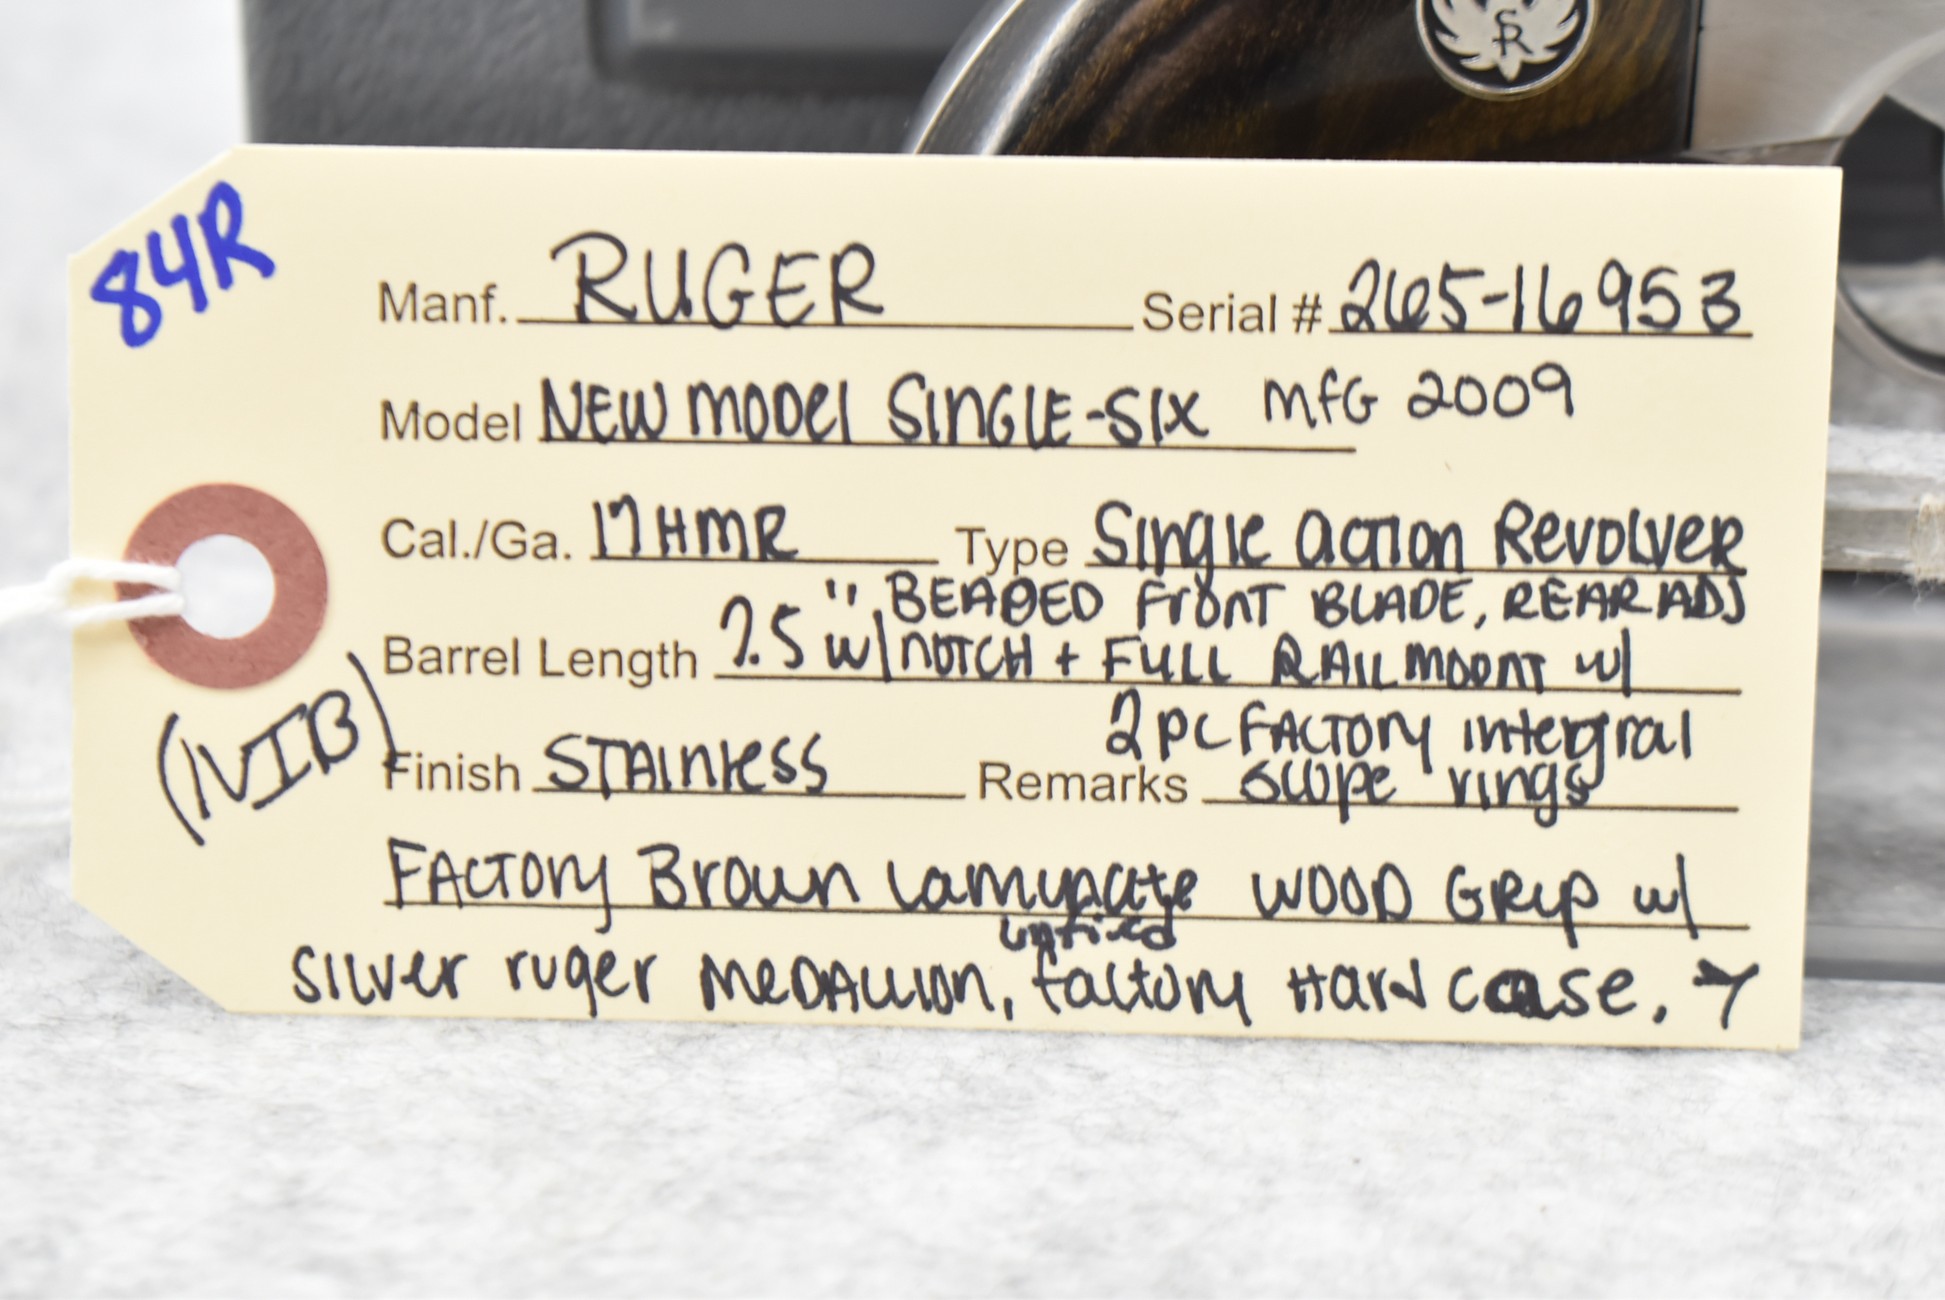 84R
Manf. RUGER Serial # 265-16953
Model NEW MODEL SINGLE-SIX MFG 2009
Cal./Ga. 17HMR Type Single Action Revolver
", BEADED FRONT BLADE, REAR ADJ
Barrel Length 7.5 w/ NOTCH + FULL RAIL MOUNT w/
2 PC FACTORY intergral
(NIB)
Finish STAINLESS Remarks scope rings
FACTORY Brown Lamynate WOOD GRIP w/
unfired
SILVER ruger MEDALLION, factory Hard case, →
SR